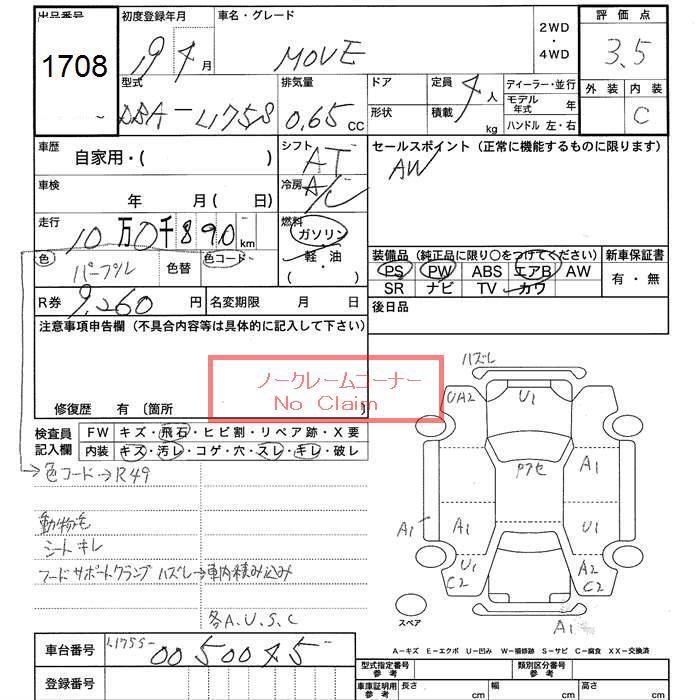 出品番号 初度登録年月 車名・グレード 2WD・4WD 評価点
1708 19 4月 MOVE 3.5
型式 排気量 ドア 定員 ディーラー・並行 外装 内装
DBA-L175S 0.65 CC 形状 4人 積載 kg モデル年式 年 C
ハンドル 左・右
車歴 自家用・( ) シフト AT セールスポイント(正常に機能するものに限ります)
車検 年 月( 日) 冷房 A/C AW
走行 10万0千890km 燃料 ガソリン・軽・油 ( )
装備品(純正品に限り○をつけてください) 新車保証書
色 パープル 色替 色コード PS PW ABS エアB AW 有・無
SR ナビ TV カワ
R券 9,260円 名変期限 月 日 後日品
注意事項申告欄(不具合内容等は具体的に記入して下さい)
ノークレームコーナー
No Claim
修復歴 有〔箇所 〕
検査員記入欄 FW キズ・飛石・ヒビ割・リペア跡・X要
内装 キズ・汚レ・コゲ・穴・スレ・キレ・破レ
色コード→R49
動物毛
シートキレ
フードサポートクランプ ハズレ→車内積み込み
各A.U.S.C
ハズレ
UA2 U1
アクセ A1
A1 A1 U1
U C2 A2 C2
スペア A1
A-キズ E-エクボ U-凹み W-補修跡 S-サビ C-腐食 XX-交換済
車台番号 L175S-0050045
登録番号
型式指定番号 参考 類別区分番号 参考
車庫証明用 参考 長さ cm 幅 cm 高さ cm